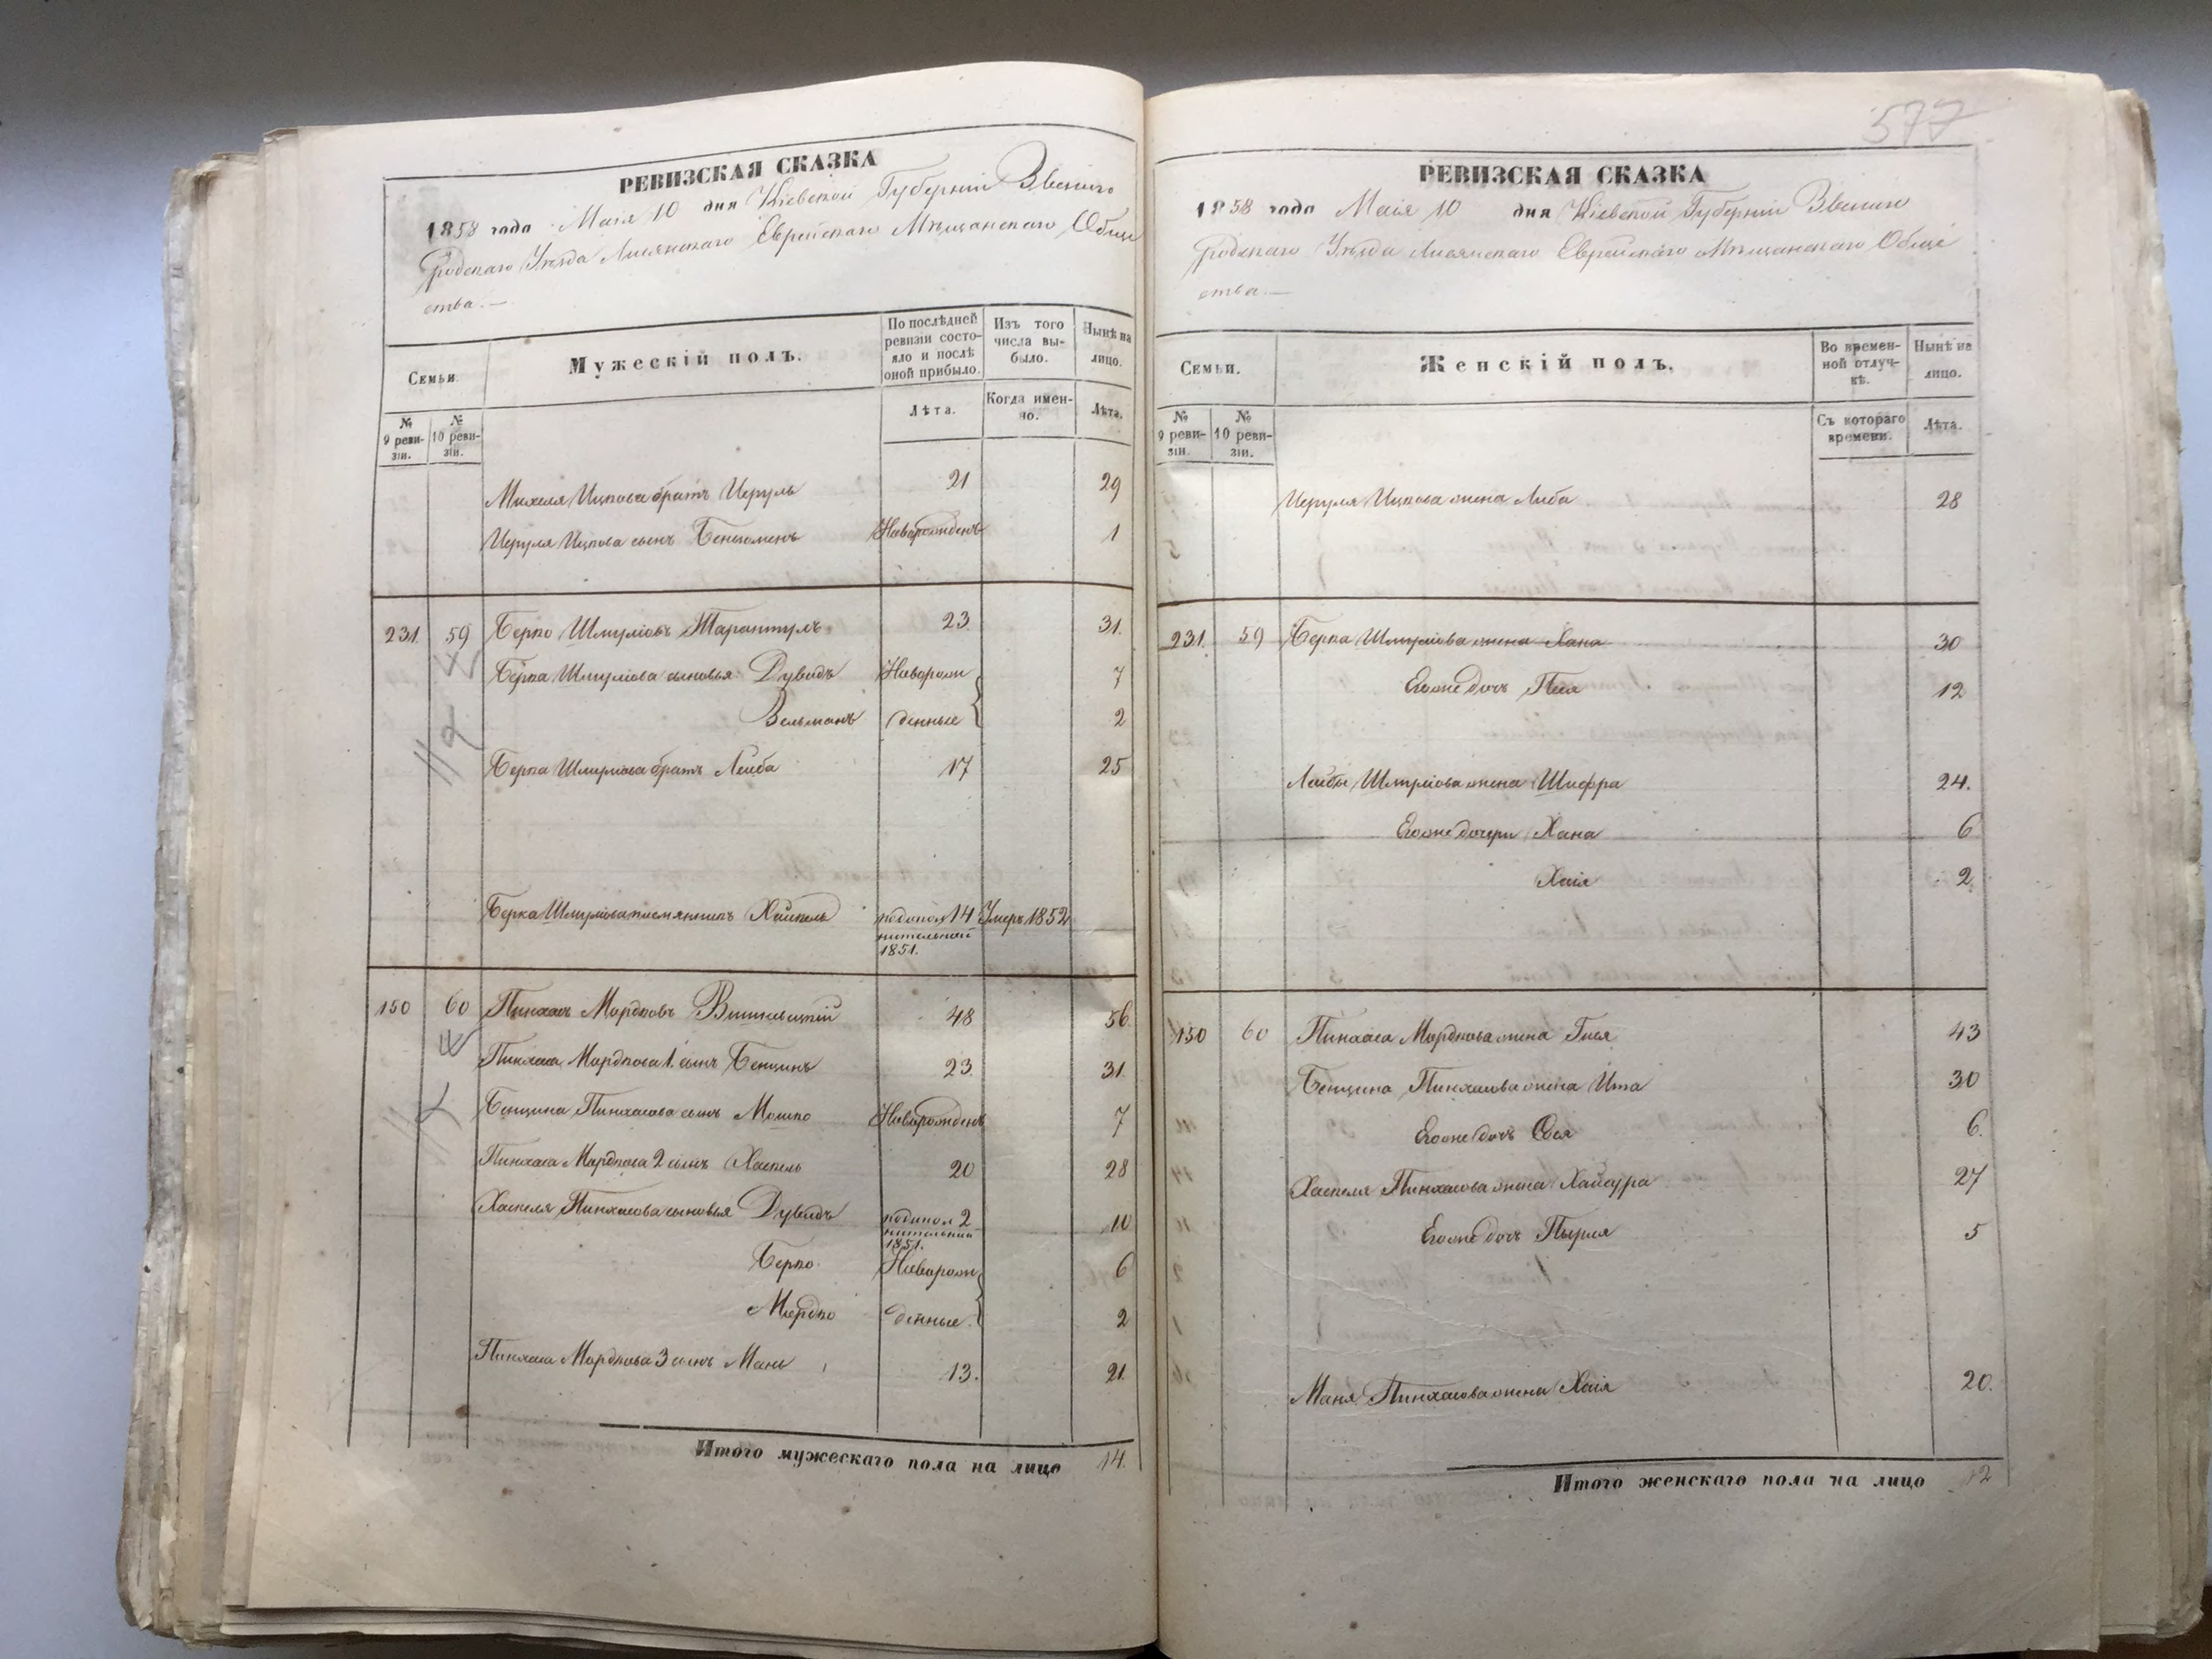 РЕВИЗСКАЯ СКАЗКА
1858 года Маія 10 дня Кіевской Губерніи Звениго
родскаго Уѣзда Лисянскаго Еврейскаго Мѣщанскаго Обще
ства.—
Семьи.
Мужескій полъ.
По послѣдней ревизіи состояло и послѣ оной прибыло.
Изъ того числа выбыло.
Нынѣ на лицо.
№ 9 ревизіи.
№ 10 ревизіи.
Лѣта.
Когда именно.
Лѣта.
Михеля Ицкова братъ Исруль 21 29
Исруля Ицкова сынъ Беньюменъ Новорожденъ 1
231. 59 Берко Шмуліовъ Тарантулъ 23 31.
Берка Шмуліова сыновья Дувидъ Новорож 7
Зельманъ денные 2
Берка Шмуліова братъ Лейба 17 25
Берка Шмуліова племянникъ Хаскель подопол 14 Умеръ 1852
нительной
1851.
150 60 Пинхасъ Мордковъ Вишневецкій 48 56
Пинхаса Мордкова 1. сынъ Бенционъ 23. 31.
Бенциона Пинхасова сынъ Мошко Новорожденъ 7
Пинхаса Мордкова 2 сынъ Хаскель 20 28
Хаскеля Пинхасова сыновья Дувидъ подопол 2 10
нительной
1851.
Берко Новорож 6
Мордко денные 2
Пинхаса Мордкова 3 сынъ Мань 13. 21.
Итого мужескаго пола на лицо 14.
577
РЕВИЗСКАЯ СКАЗКА
1858 года Маія 10 дня Кіевской Губерніи Звениго
родскаго Уѣзда Лисянскаго Еврейскаго Мѣщанскаго Обще
ства.—
Семьи.
Женскій полъ.
Во временной отлучкѣ.
Нынѣ на лицо.
№ 9 ревизіи.
№ 10 ревизіи.
Съ котораго времени.
Лѣта.
Исруля Ицкова жена Либа 28
231. 59 Берка Шмуліова жена Хана 30
Егоже дочь Песя 12
Лейбы Шмуліова жена Шифра 24.
Егоже дочери Хана 6
Хаія 2
150 60 Пинхаса Мордкова жена Гися 43
Бенциона Пинхасова жена Ита 30
Егоже дочь 6.
Хаскеля Пинхасова жена 27
Егоже дочь Пырля 5
Маня Пинхасова жена Хаія 20.
Итого женскаго пола на лицо 12